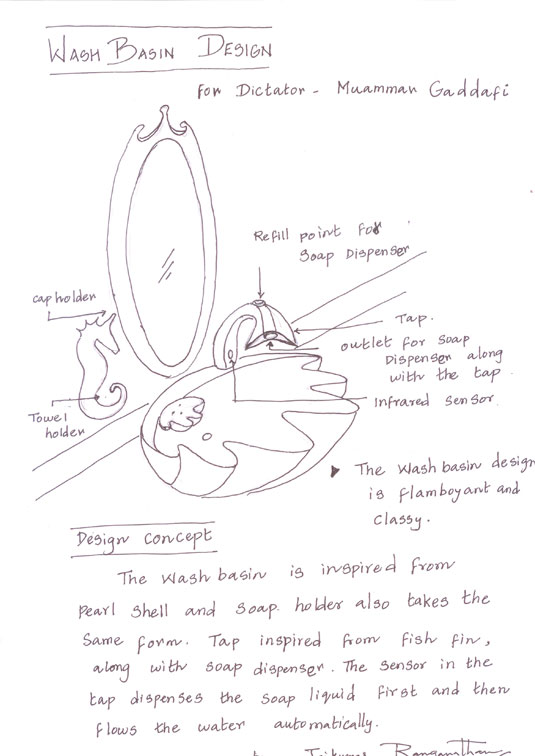 WASH BASIN DESIGN
for Dictator - Muamman Gaddafi
Refill point for
Soap Dispenser
cap holder
Tap.
outlet for soap
Dispenser along
with the tap.
Infrared sensor
Towel
holder
The Wash basin design
is flamboyant and
classy.
Design concept
The Wash basin is inspired from
pearl shell and soap holder also takes the
same form. Tap inspired from fish fin,
along with soap dispenser. The sensor in the
tap dispenses the soap liquid first and then
flows the water automatically.